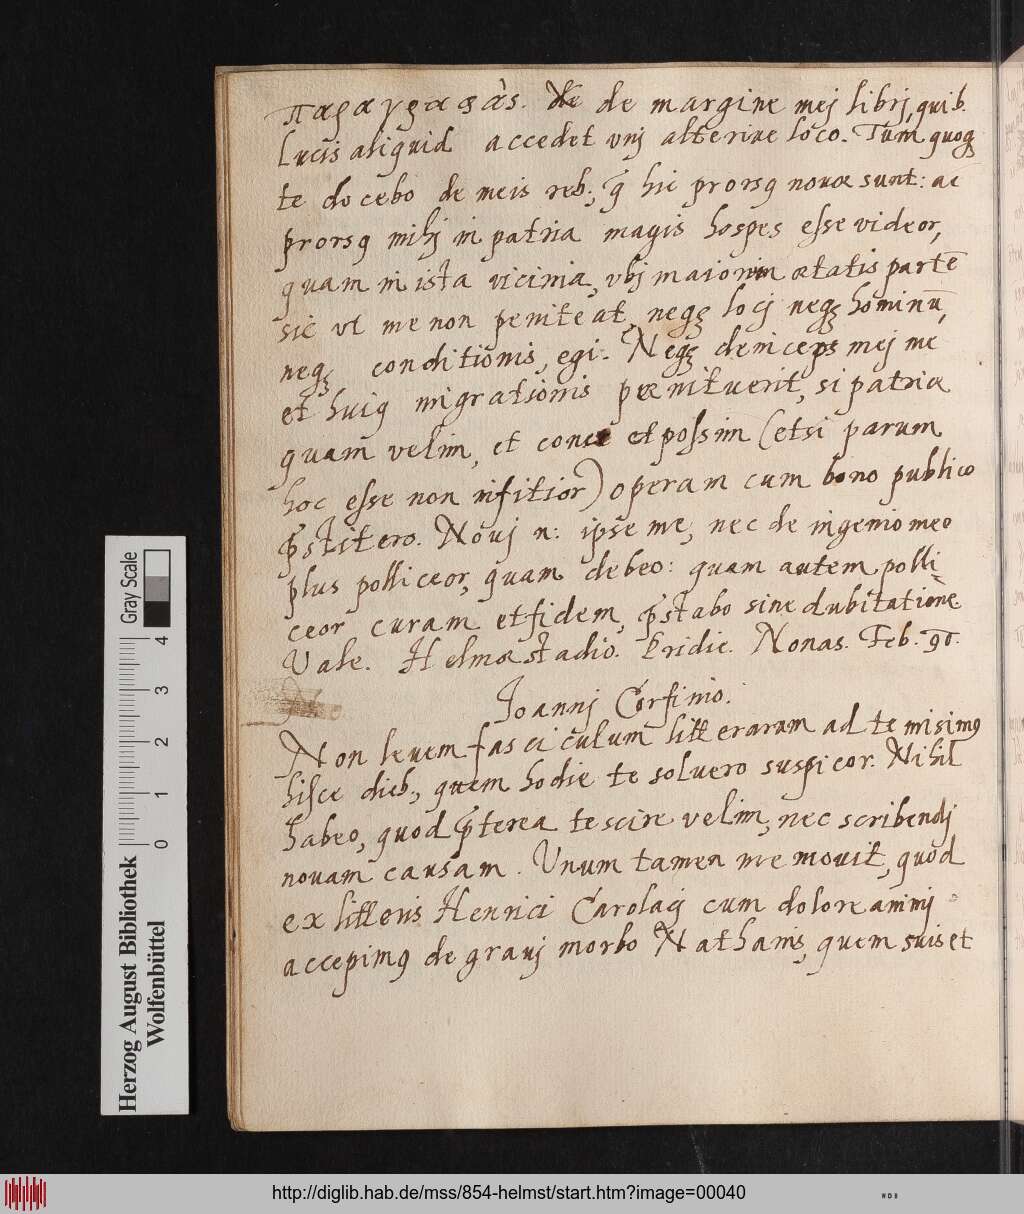 παραγραφὰς. de de margine mej librj, quib.
Lucis aliquid accedet vnj alteriue loco. Tum quoqꝫ
te docebo de meis reb; q̃ hic prorsꝰ nouæ sunt: ac
prorsꝰ mihj in patria magis hospes esse videor,
quam in ista vicinia, vbj maiorim ætatis partẽ
sic vt me non peniteat neqꝫ locj neqꝫ hominũ,
neqꝫ conditionis, egi. Neqꝫ deinceps mej me
et huiꝰ migrationis pœnituerit, si patriæ
quam velim, et et possim (etsi parum
hoc esse non infitior) operam cum bono publico
p̃stitero. Nouj n: ipse me, nec de ingenio meo
plus polliceor, quam debeo: quam autem polli-
ceor curam et fidem, p̃stabo sine dubitatione.
Vale. Helmæstadio. Pridie. Nonas. Feb. 90.
Joannj Corfinio.
Non leuem fasciculum litterarum ad te misimꝰ
hisce dieb; quem hodie te soluero suspicor. Nihil
habeo, quod p̃terea te scire velim, nec scribendj
nouam causam. Unum tamen me mouit, quod
ex litteris Henrici Carolaj cum dolore animj
accepimꝰ de grauj morbo Nathanis, quem suis et
Herzog August Bibliothek
Wolfenbüttel
0 1 2 3 4
Gray Scale
http://diglib.hab.de/mss/854-helmst/start.htm?image=00040